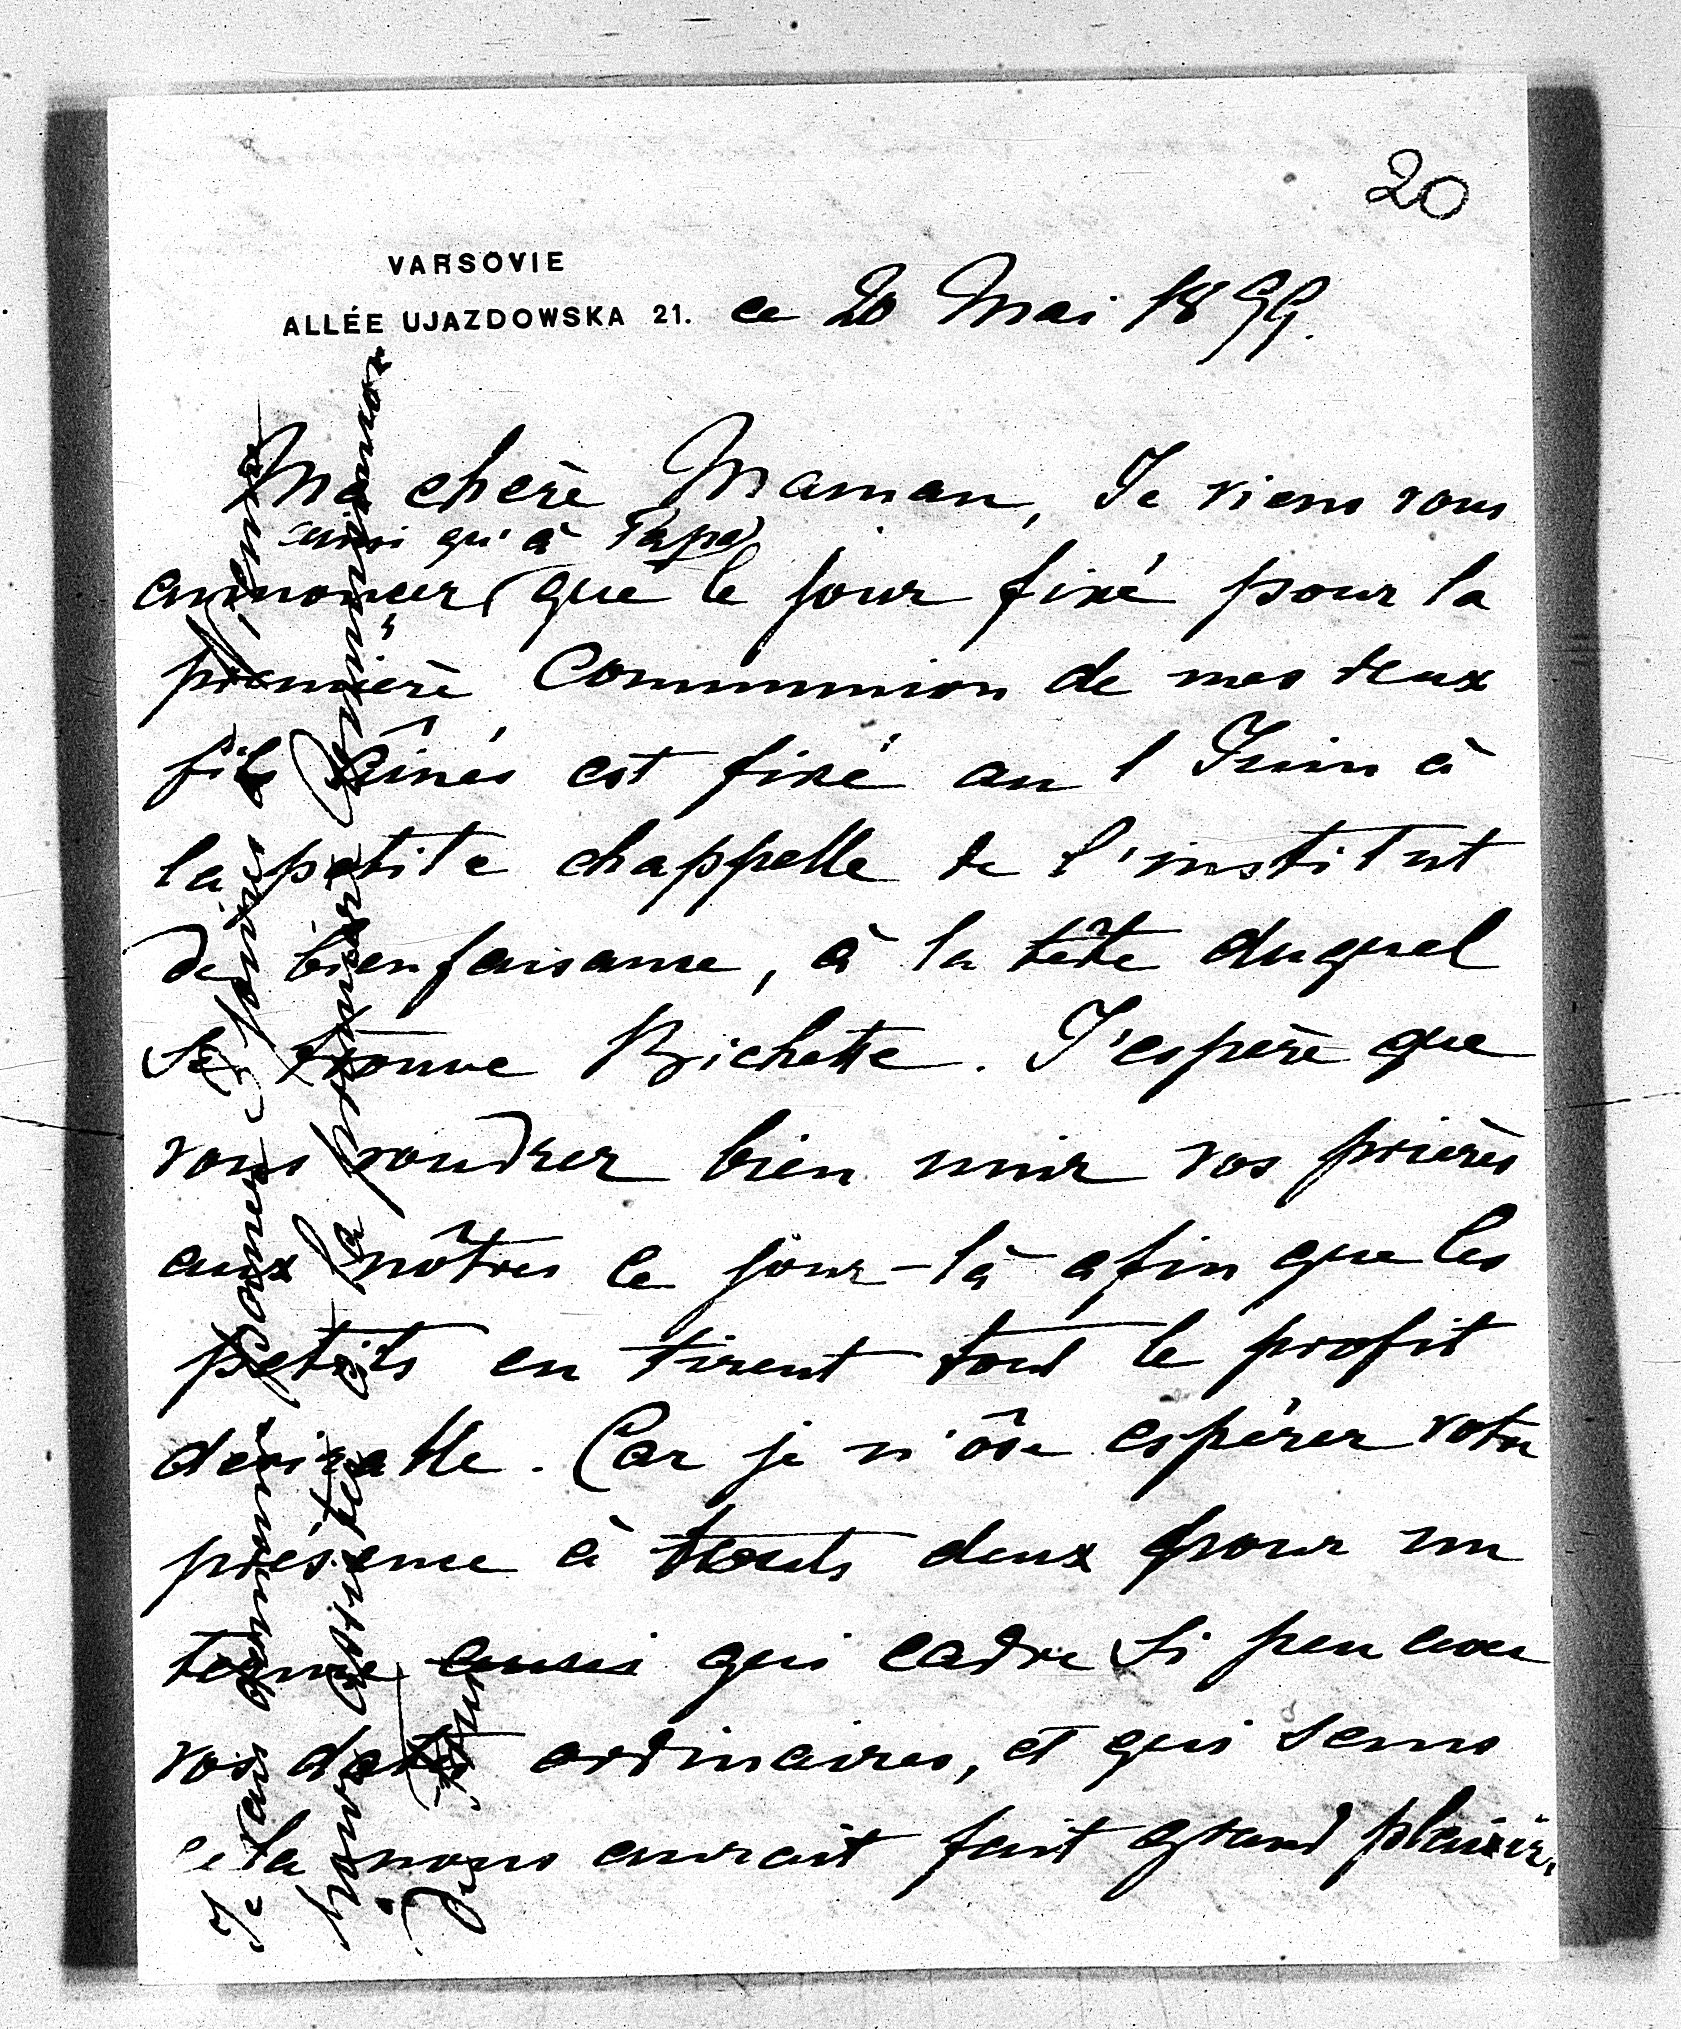 20
VARSOVIE
ALLÉE UJAZDOWSKA 21. ce 20 Mai 1899.
Ma chère Maman, Je viens vous
ainsi qu'à Papa
annoncer que le jour fixé pour la
première Communion de mes deux
fils aînés est fixé au 1 Juin à
la petite chappelle de l'institut
de bienfaisance, à la tête duquel
se trouve Bichette. J'espère que
vous voudrez bien unir vos prières
aux nôtres ce jour-là afin que les
petits en tirent tout le profit
désirable. Car je n'ôse espérer votre
présence à touts deux pour un
terme qui cadre si peu avec
vos dates ordinaires, et qui sans
cela nous aurait fait grand plaisir.
Je vais
à la première Communion